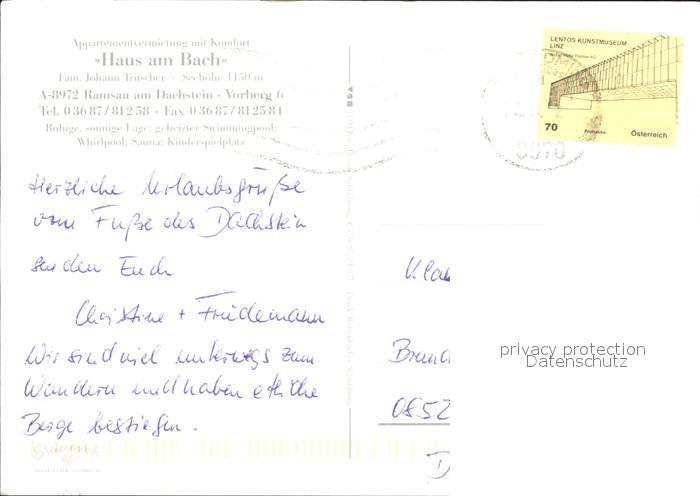 Appartementvermietung mit Komfort
»Haus am Bach«
Fam. Johann Tritscher · Seehöhe 1150 m
A-8972 Ramsau am Dachstein · Vorberg 6
Tel. 0 36 87/812 58 · Fax 0 36 87/812584
Ruhige, sonnige Lage; geheizter Swimmingpool;
Whirlpool; Sauna; Kinderspielplatz
Herzliche Urlaubsgrüße
vom Fuße des Dachstein
senden Euch
Christine + Friedemann
Wir sind viel unterwegs zum
Wandern und haben etliche
Berge bestiegen.
LENTOS KUNSTMUSEUM
LINZ
70
Österreich
8970
Brand
0852
D
privacy protection
Datenschutz